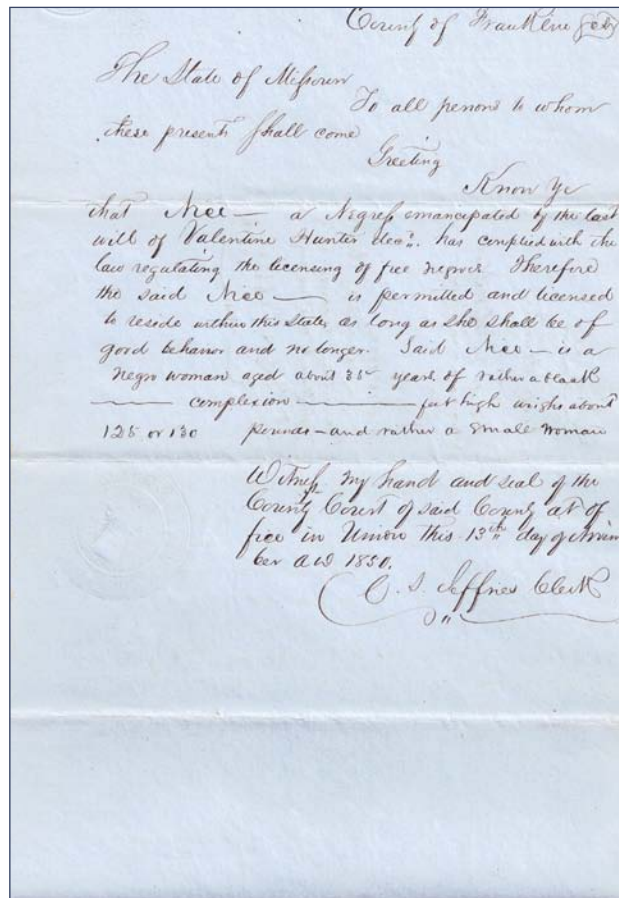 County of Franklin Sct
The State of Missouri
To all persons to whom
these presents shall come
Greeting
Know Ye
that Nice — a Negress emancipated by the last
will of Valentine Hunter decd. has complied with the
law regulating the licensing of free negroes Therefore
the said Nice — is permitted and licensed
to reside within this State, as long as she shall be of
good behavior and no longer. Said Nice — is a
negro woman aged about 35 years of rather a black
— complexion — feet high weighs about
125 or 130 pounds — and rather a small woman
Witness my hand and seal of the
County Court of said County at of
fice in Union this 13th day of Novem
ber AD 1850.
C. S. Jeffries Clerk